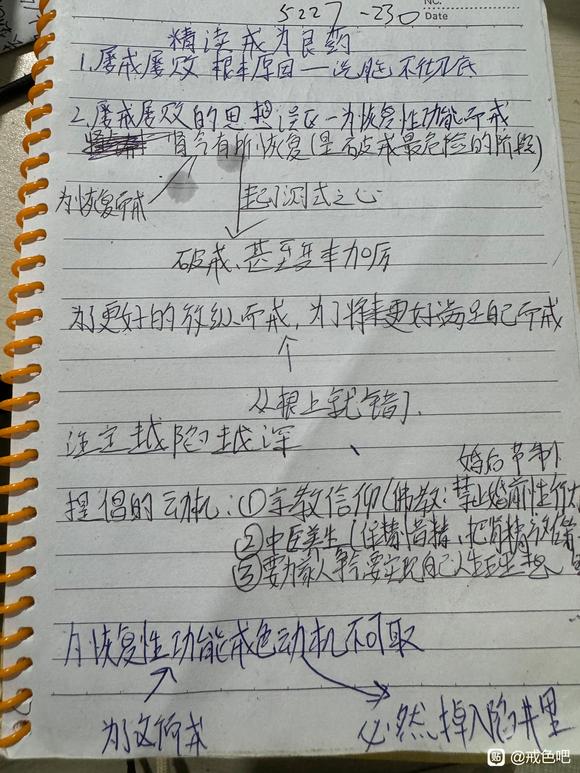 NO.
5227-230
Date
精读戒为良药
1.屡戒屡败 根本原因—洗脑不彻底
2.屡戒屡败的思想误区—为恢复性功能而戒
肾气有所恢复(是破戒最危险的阶段)
为恢复而戒
起测试之心
破戒、甚至变本加厉
为了更好的放纵而戒,为了将来更好满足自己而戒
从根上就错了.
注定越陷越深
婚后节制
提倡的动机:①宗教信仰(佛教:禁止婚前性行为
②中医养生(保精惜精、把肾精
③要为家人争气要实现自己人生理想
为恢复性功能戒色动机不可取
为这何戒
必然掉入陷井里
贴 @戒色吧